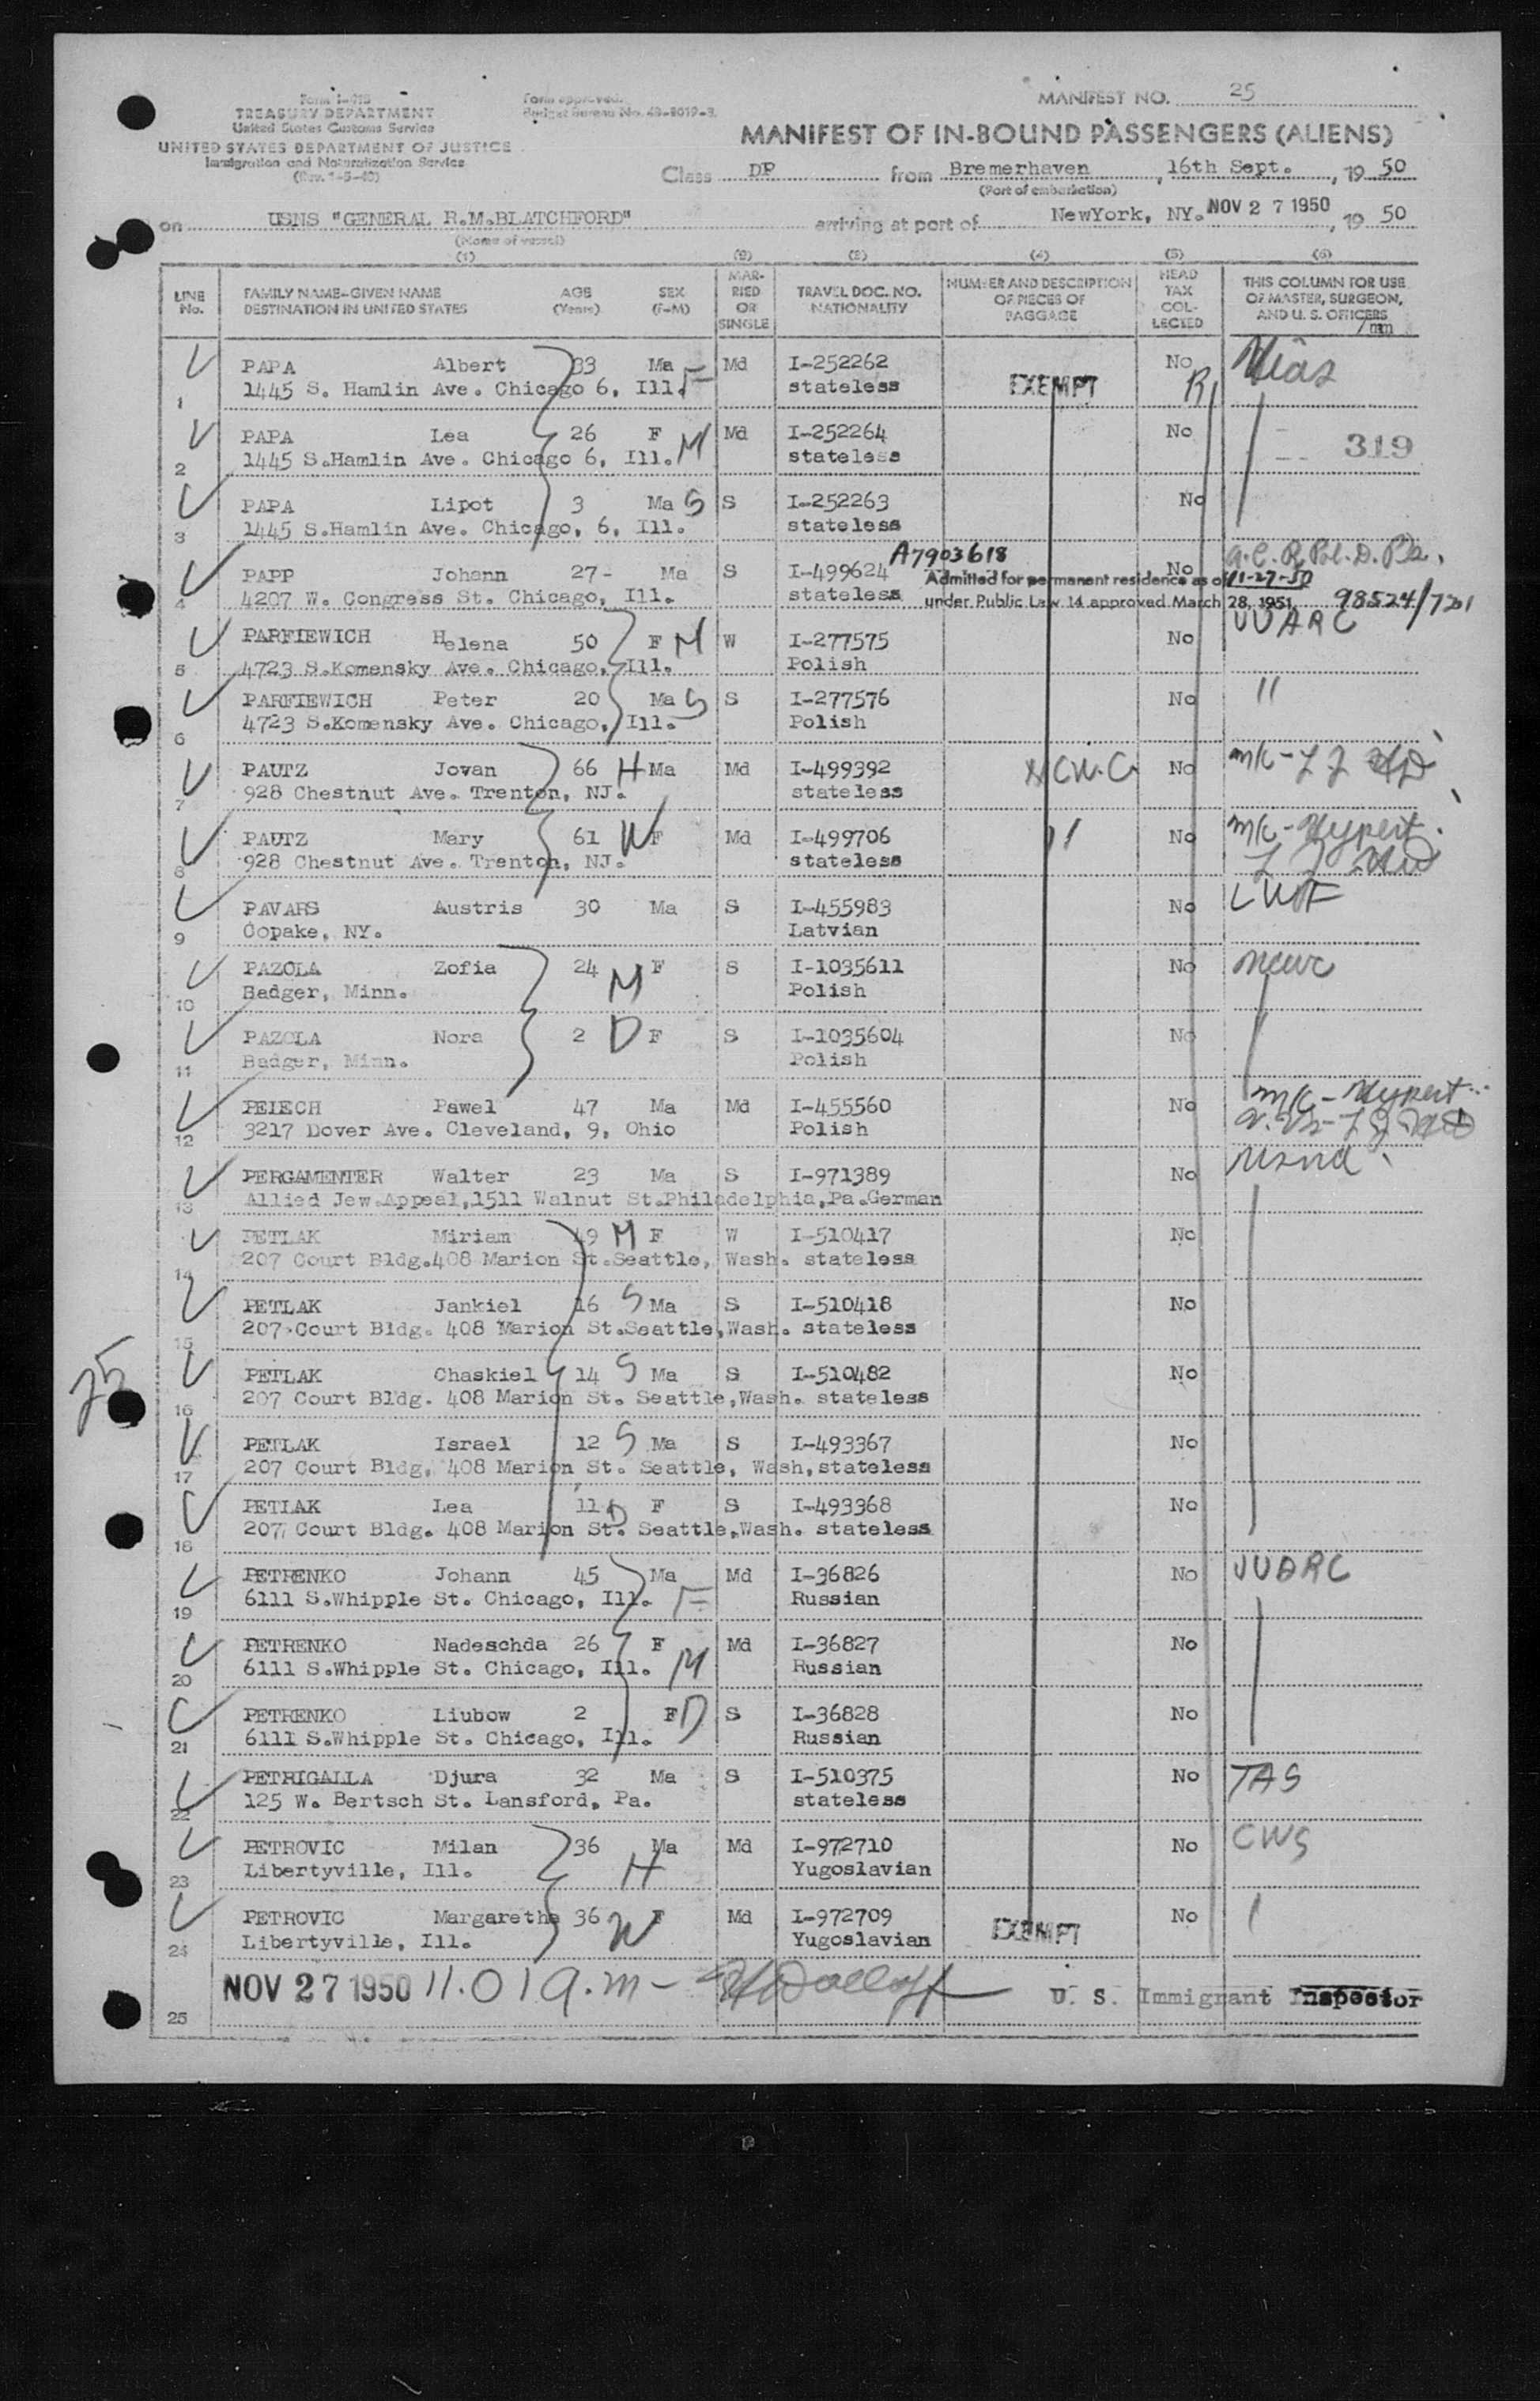 Form I-415
TREASURY DEPARTMENT
United States Customs Service
UNITED STATES DEPARTMENT OF JUSTICE
Immigration and Naturalization Service
Form approved.
Budget Bureau No.
MANIFEST NO. 25
MANIFEST OF IN-BOUND PASSENGERS (ALIENS)
Class DP from Bremerhaven, 16th Sept., 19 50
(Port of embarkation)
on USNS "GENERAL R.M.BLATCHFORD" arriving at port of NewYork, NY. NOV 27 1950, 19 50
(Name of vessel)
(1) (2) (3) (4) (5) (6)
LINE No. FAMILY NAME-GIVEN NAME DESTINATION IN UNITED STATES AGE (Years) SEX (F-M) MARRIED OR SINGLE TRAVEL DOC. NO. NATIONALITY NUMBER AND DESCRIPTION OF PIECES OF BAGGAGE HEAD TAX COLLECTED THIS COLUMN FOR USE OF MASTER, SURGEON, AND U. S. OFFICERS
PAPA Albert 33 Ma F Md I-252262 EXEMPT No Hias
1 1445 S. Hamlin Ave. Chicago 6, Ill. stateless
PAPA Lea 26 F M Md I-252264 No 319
2 1445 S.Hamlin Ave. Chicago 6, Ill. stateless
PAPA Lipot 3 Ma S S I-252263 No
3 1445 S.Hamlin Ave. Chicago, 6, Ill. stateless
A7903618
PAPP Johann 27- Ma S I-499624 No
Admitted for permanent residence as of 11-27-50
4 4207 W. Congress St. Chicago, Ill. stateless under Public Law 14 approved March 28, 1951, 98524/7201
PARFIEWICH Helena 50 F M W I-277575 No UUARC
5 4723 S.Komensky Ave. Chicago, Ill. Polish
PARFIEWICH Peter 20 Ma S S I-277576 No "
6 4723 S.Komensky Ave. Chicago, Ill. Polish
PAUTZ Jovan 66 H Ma Md I-499392 NCWC No
7 928 Chestnut Ave. Trenton, NJ. stateless
PAUTZ Mary 61 W F Md I-499706 " No
8 928 Chestnut Ave. Trenton, NJ. stateless
PAVARS Austris 30 Ma S I-455983 No LWF
9 Copake, NY. Latvian
PAZOLA Zofia 24 M F S I-1035611 No ncwc
10 Badger, Minn. Polish
PAZOLA Nora 2 D F S I-1035604 No
11 Badger, Minn. Polish
PEIECH Pawel 47 Ma Md I-455560 No
12 3217 Dover Ave. Cleveland, 9, Ohio Polish
PERGAMENTER Walter 23 Ma S I-971389 No usna
13 Allied Jew.Appeal,1511 Walnut St.Philadelphia,Pa.German
PETLAK Miriam 49 M F W I-510417 No
14 207 Court Bldg.408 Marion St.Seattle, Wash. stateless
PETLAK Jankiel 16 S Ma S I-510418 No
15 207 Court Bldg. 408 Marion St.Seattle,Wash. stateless
PETLAK Chaskiel 14 S Ma S I-510482 No
25
16 207 Court Bldg. 408 Marion St. Seattle,Wash. stateless
PETLAK Israel 12 S Ma S I-493367 No
17 207 Court Bldg, 408 Marion St. Seattle, Wash,stateless
PETLAK Lea 11 D F S I-493368 No
18 207 Court Bldg. 408 Marion St. Seattle,Wash. stateless
PETRENKO Johann 45 Ma F Md I-36826 No UUARC
19 6111 S.Whipple St. Chicago, Ill. Russian
PETRENKO Nadeschda 26 F M Md I-36827 No
20 6111 S.Whipple St. Chicago, Ill. Russian
PETRENKO Liubow 2 F D S I-36828 No
21 6111 S.Whipple St. Chicago, Ill. Russian
PETRIGALLA Djura 32 Ma S I-510375 No TAS
22 125 W. Bertsch St. Lansford, Pa. stateless
PETROVIC Milan 36 Ma H Md I-972710 No CWS
23 Libertyville, Ill. Yugoslavian
PETROVIC Margarethe 36 W F Md I-972709 EXEMPT No
24 Libertyville, Ill. Yugoslavian
NOV 27 1950 11.01 a.m - U. S. Immigrant Inspector
25